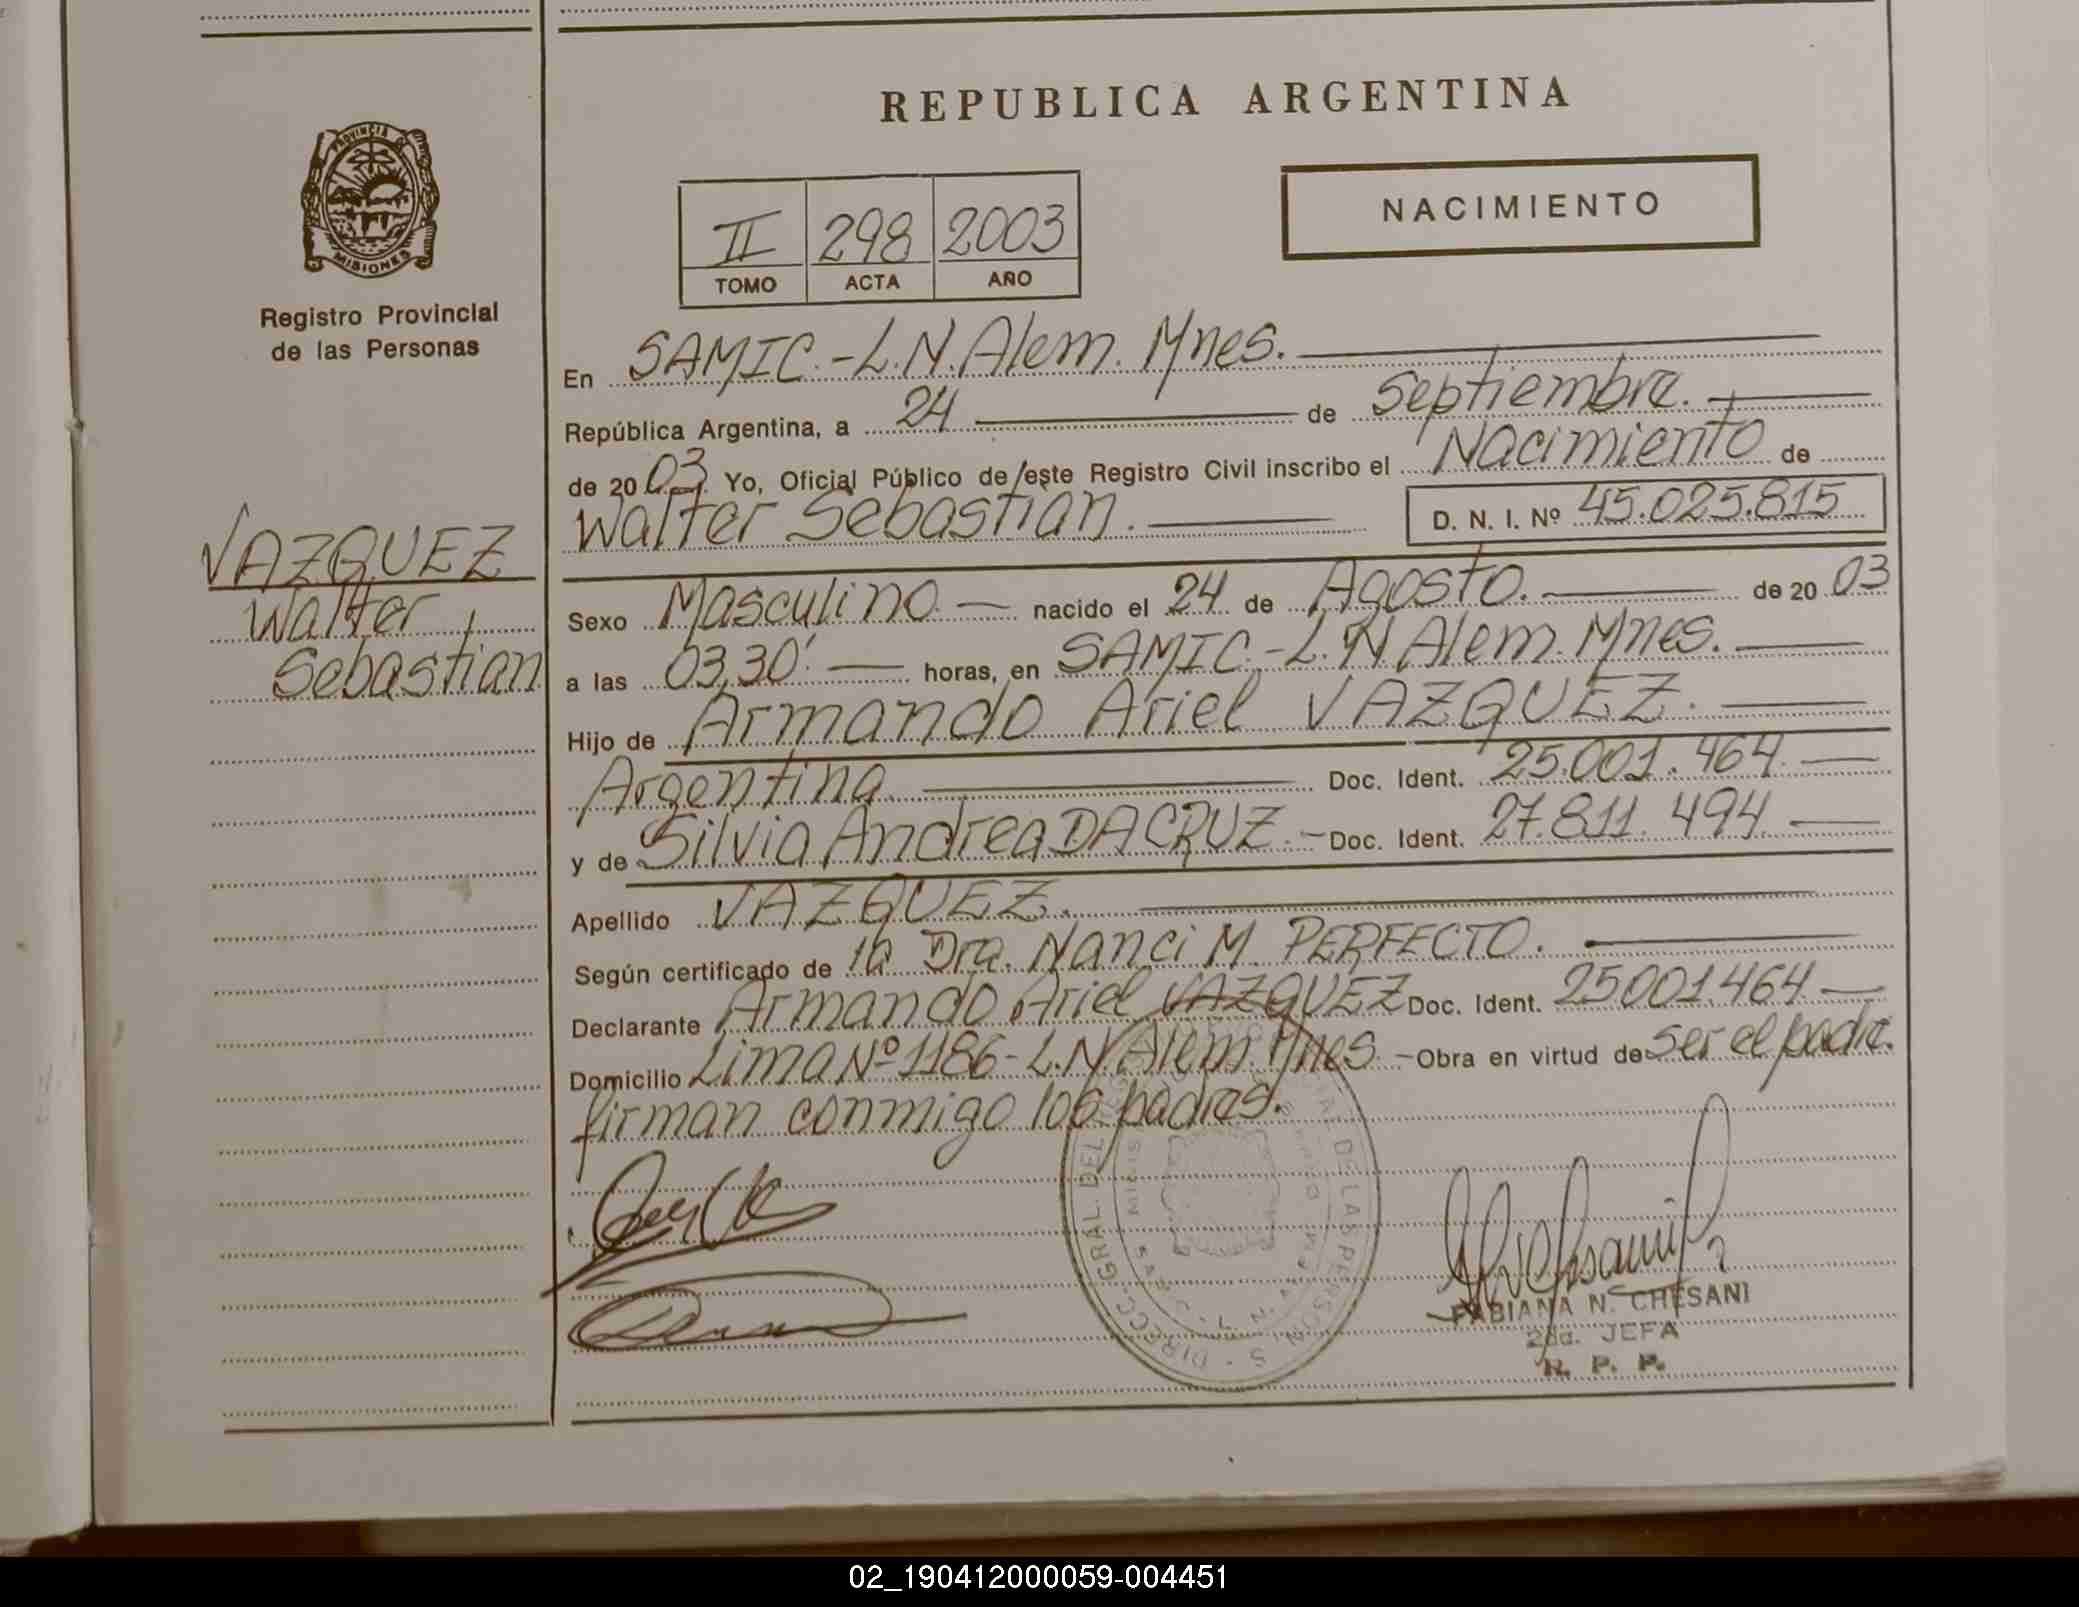 REPUBLICA ARGENTINA
PROVINCIA
MISIONES
Registro Provincial
de las Personas
II 298 2003
TOMO ACTA AÑO
NACIMIENTO
En SAMIC.-L.N.Alem. Mnes.
República Argentina, a 24 de Septiembre.
de 2003 Yo, Oficial Público de este Registro Civil inscribo el Nacimiento de
Walter Sebastian. D. N. I. Nº 45.025.815
VAZQUEZ
Walter
Sebastian
Sexo Masculino nacido el 24 de Agosto. de 2003
a las 03,30' horas, en SAMIC.-L.N Alem. Mnes.
Hijo de Armando Ariel VAZQUEZ.
Argentina Doc. Ident. 25.001.464
y de Silvia Andrea DA CRUZ.- Doc. Ident. 27.811.494
Apellido VAZQUEZ.
Según certificado de la Dra. Nanci M. PERFECTO.
Declarante Armando Ariel VAZQUEZ Doc. Ident. 25001.464
Domicilio Lima Nº 1186- L.N.Alem. Mnes.- Obra en virtud de ser el padre.
firman conmigo los padres.
DIRECC. GRAL. DEL DE LAS PERSON S
FABIANA N. CHESANI
2da. JEFA
R. P. P.
02_190412000059-004451